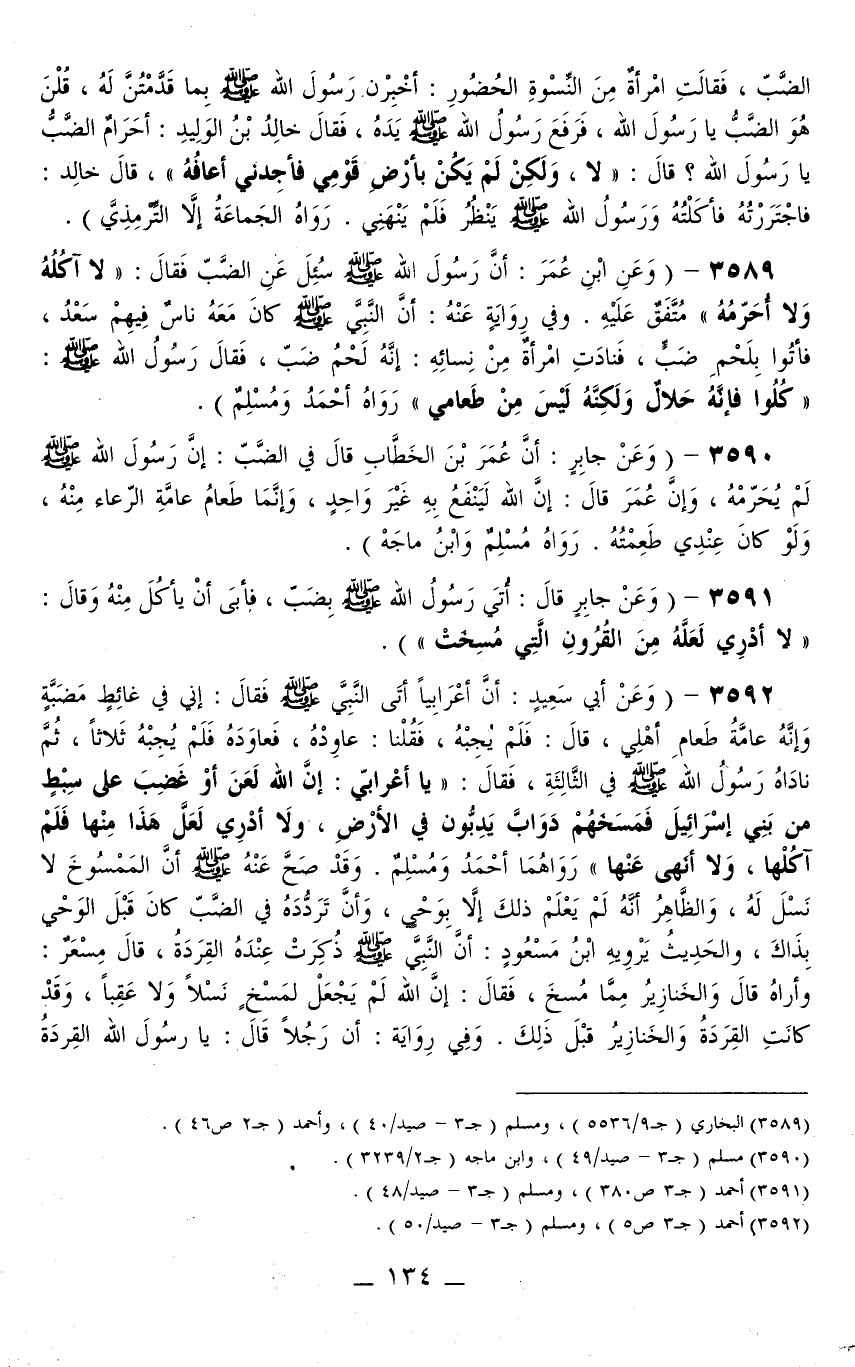 الضَّبّ ، فَقالَتِ امْرأةٌ مِنَ النِّسْوةِ الحُضُورِ : أخْبِرْن رَسُولَ الله ﷺ بِما قَدَّمْتُنَّ لَهُ ، قُلْنَ
هُوَ الضَّبُّ يا رَسُولَ الله ، فَرَفَعَ رَسُولُ الله ﷺ يَدَهُ ، فَقالَ خالِدُ بْنُ الوَلِيدِ : أحَرَامٌ الضَّبُّ
يا رَسُولَ الله ؟ قالَ : « لا ، وَلَكِنْ لَمْ يَكُنْ بأرْضِ قَوْمِي فأجِدني أعافُهُ » ، قالَ خالِد :
فاجْتَرَرْتُهُ فأكَلْتُهُ وَرَسُولُ الله ﷺ يَنْظُرُ فَلَمْ يَنْهَنِي . رَوَاهُ الجَماعَةُ إلَّا التِّرْمِذِيَّ ) .
٣٥٨٩ – ( وَعَنِ ابْنِ عُمَرَ : أنَّ رَسُولَ الله ﷺ سُئِلَ عَنِ الضَّبّ فَقالَ : « لا آكُلُهُ
وَلا أُحَرّمُهُ » مُتَّفَقٌ عَلَيْهِ . وفي رِوَايَةٍ عَنْهُ : أنَّ النَّبِيَّ ﷺ كانَ مَعَهُ ناسٌ فِيهِمْ سَعْدُ ،
فأتُوا بِلَحْمِ ضَبٍّ ، فَنادَتِ امْرأةٌ مِنْ نِسائِهِ : إنَّهُ لَحْمُ ضَبّ ، فَقالَ رَسُولُ الله ﷺ :
« كُلُوا فإنَّهُ حَلالٌ وَلَكِنَّهُ لَيْسَ مِنْ طَعامي » رَوَاهُ أحْمَدُ وَمُسْلِمٌ ) .
٣٥٩٠ – ( وَعَنْ جابِرٍ : أنَّ عُمَرَ بْنَ الخَطَّاب قالَ في الضَّبّ : إنَّ رَسُولَ الله ﷺ
لَمْ يُحَرّمْهُ ، وَإنَّ عُمَرَ قالَ : إنَّ الله لَيَنْفَعُ بِهِ غَيْرَ وَاحِدٍ ، وَإنَّمَا طَعامُ عامَّةِ الرّعاء مِنْهُ ،
وَلَوْ كانَ عِنْدِي طَعِمْتُهُ . رَوَاهُ مُسْلِمٌ وَابْنُ ماجَهْ ) .
٣٥٩١ – ( وَعَنْ جابِرٍ قالَ : أُتيَ رَسُولُ الله ﷺ بِضَبّ ، فأبَى أنْ يأكُلَ مِنْهُ وَقالَ :
« لا أدْرِي لَعَلَّهُ مِنَ القُرُونِ الَّتِي مُسِخَتْ » ) .
٣٥٩٢ – ( وَعَنْ أبي سَعِيدٍ : أنَّ أعْرَابِياً أتَى النَّبِيَّ ﷺ فَقالَ : إني في غائِطٍ مَضَبَّةٍ
وَإنَّهُ عامَّةُ طَعامِ أهْلِي ، قالَ : فَلَمْ يُجِبْهُ ، فَقُلْنا : عاوِدْهُ ، فَعاوَدَهُ فَلَمْ يُجِبْهُ ثَلاثاً ، ثُمَّ
نادَاهُ رَسُولُ الله ﷺ في الثَّالِثَةِ ، فَقالَ : « يا أعْرابيّ : إنَّ الله لَعَنَ أوْ غَضِبَ على سِبْطٍ
من بَنِي إسْرَائِيلَ فَمَسَخَهُمْ دَوَابَّ يَدِبُّون في الأرْضِ ، ولَا أدْرِي لَعَلَّ هَذَا مِنْها فَلَمْ
آكُلْها ، وَلَا أنهى عَنْها » رَوَاهُمَا أحْمَدُ وَمُسْلِمٌ . وَقَدْ صَحَّ عَنْهُ ﷺ أنَّ المَمْسُوخَ لا
نَسْلَ لَهُ ، وَالظَّاهِرُ أنَّهُ لَمْ يَعْلَمْ ذلكَ إلَّا بِوَحْيٍ ، وَأنَّ تَرَدُّدَهُ في الضَّبّ كانَ قَبْلَ الوَحْي
بِذَاكَ ، والحَدِيثُ يَرْوِيهِ ابْنُ مَسْعُودٍ : أنَّ النَّبِيَّ ﷺ ذُكِرَتْ عِنْدَهُ القِرَدَةُ ، قالَ مِسْعَرٌ :
وأراهُ قالَ وَالخَنازِيرُ مِمَّا مُسخَ ، فَقالَ : إنَّ الله لَمْ يَجْعَلْ لمَسْخٍ نَسْلاً وَلا عَقِباً ، وَقَدْ
كانَتِ القِرَدَةُ وَالخَنازِيرُ قبْلَ ذَلِكَ . وَفِي رِوَايَة : أن رَجُلاً قَالَ : يا رسُولَ الله القِردَةُ
(٣٥٨٩) البخاري ( جـ٥٥٣٦/٩ ) ، ومسلم ( جـ٣ – صيد/٤٠ ) ، وأحمد ( جـ٢ ص٤٦ ) .
(٣٥٩٠) مسلم ( جـ٣ – صيد/٤٩ ) ، وابن ماجه ( جـ٣٢٣٩/٢ ) .
(٣٥٩١) أحمد ( جـ٣ ص٣٨٠ ) ، ومسلم ( جـ٣ – صيد/٤٨ ) .
(٣٥٩٢) أحمد ( جـ٣ ص٥ ) ، ومسلم ( جـ٣ – صيد/٥٠ ) .
– ١٣٤ –